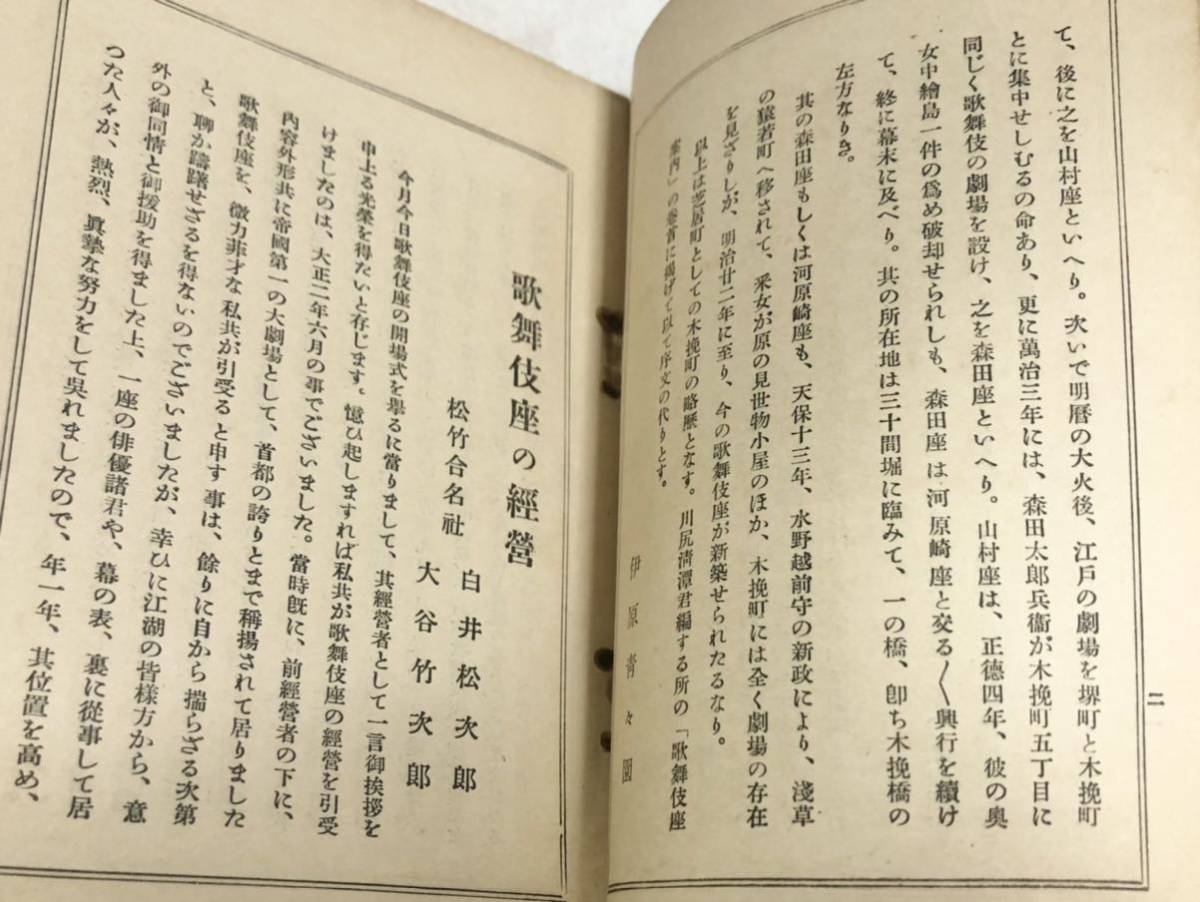 二
て、後に之を山村座といへり。次いで明暦の大火後、江戸の劇場を堺町と木挽町
とに集中せしむるの命あり、更に萬治三年には、森田太郎兵衞が木挽町五丁目に
同じく歌舞伎の劇場を設け、之を森田座といへり。山村座は、正德四年、彼の奥
女中繪島一件の爲め破却せられしも、森田座は河原崎座と交る〱興行を續け
て、終に幕末に及べり。其の所在地は三十間堀に臨みて、一の橋、卽ち木挽橋の
左方なりき。
其の森田座もしくは河原崎座も、天保十三年、水野越前守の新政により、淺草
の猿若町へ移されて、釆女が原の見世物小屋のほか、木挽町には全く劇場の存在
を見ざりしが、明治廿二年に至り、今の歌舞伎座が新築せられたるなり。
以上は芝居町としての木挽町の略歷となす。川尻淸潭君編する所の「歌舞伎座
案内」の卷首に揭げて以て序文の代りとす。
伊原靑々園
歌舞伎座の經營
松竹合名社
白井松次郎
大谷竹次郎
今月今日歌舞伎座の開場式を擧るに當りまして、其經營者として一言御挨拶を
申上る光榮を得たいと存じます。憶ひ起しますれば私共が歌舞伎座の經營を引受
けましたのは、大正二年六月の事でございました。當時旣に、前經營者の下に、
內容外形共に帝國第一の大劇場として、首都の誇りとまで稱揚されて居りました
歌舞伎座を、微力菲才な私共が引受ると申す事は、餘りに自から揣らざる次第
と、聊か躊躇せざるを得ないのでございましたが、幸ひに江湖の皆樣方から、意
外の御同情と御援助を得ました上、一座の俳優諸君や、幕の表、裏に從事して居
つた人々が、熱烈、眞摯な努力をして吳れましたので、年一年、其位置を高め、